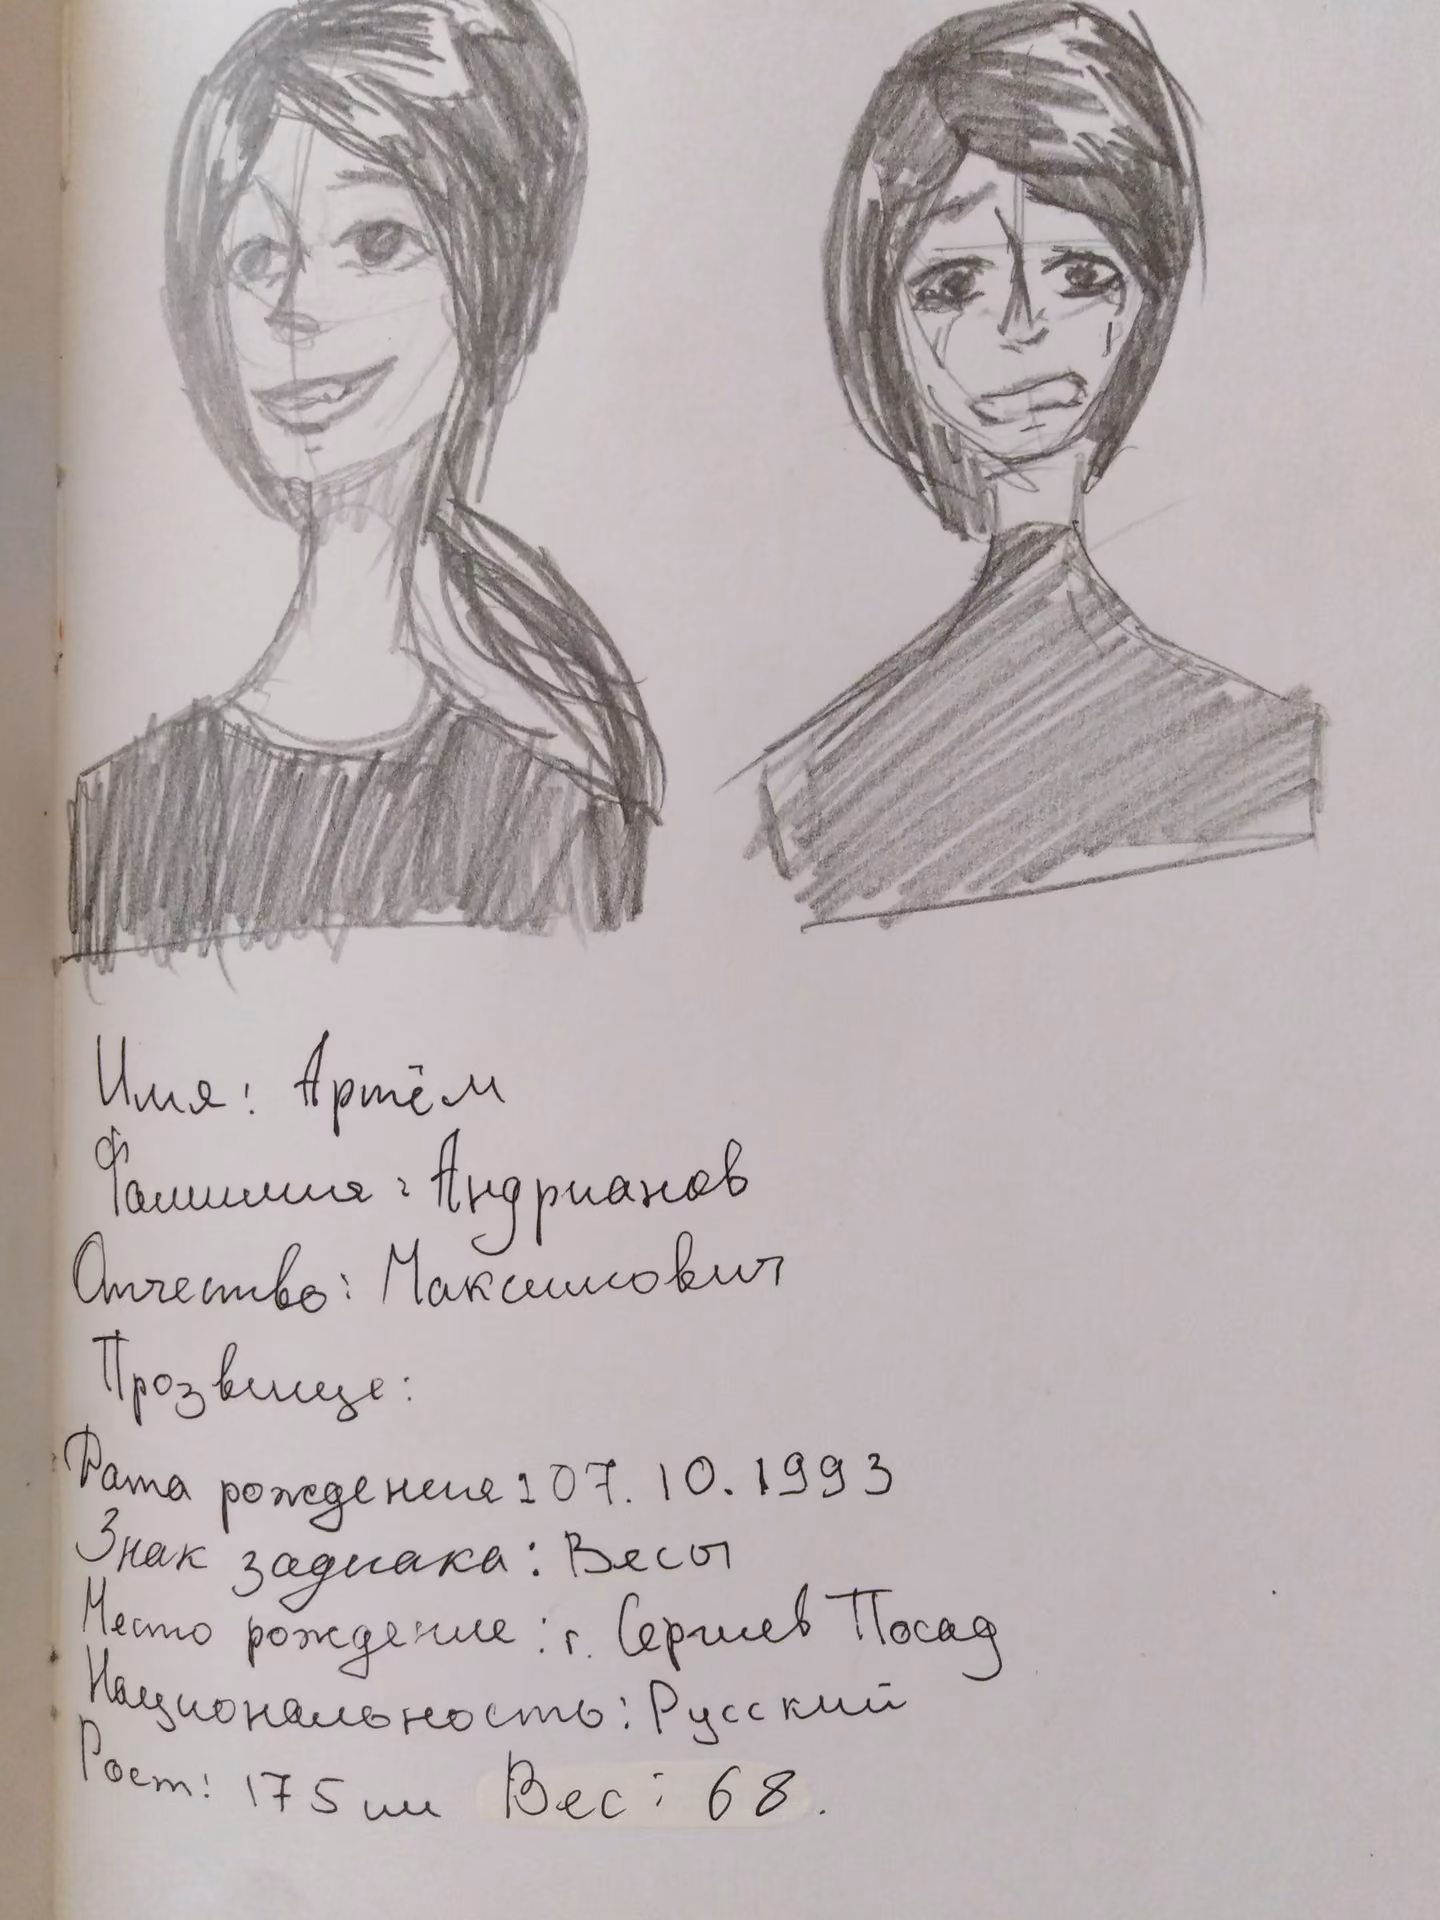 Имя: Артём
Фамилия: Андрианов
Отчество: Максимович
Прозвище:
Дата рождения: 07.10.1993
Знак задиака: Весы
Место рождение: г. Сергиев Посад
Национальность: Русский
Рост: 175 см Вес: 68.